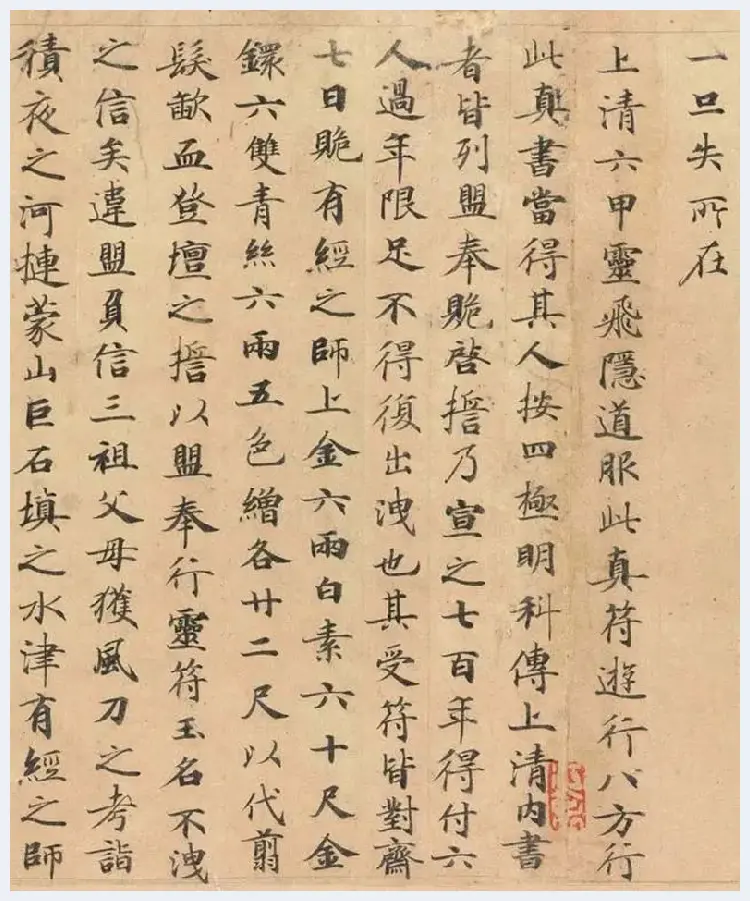 一旦失所在
上清六甲靈飛隱道服此真符遊行八方行
此真書當得其人按四極明科傳上清內書
者皆列盟奉贍啓擔乃宣之七百年得付六
人過年限足不得復出洩也其受符皆對齋
七日贍有經之師上金六兩白素六十尺金
鐶六雙青絲六兩五色繒各廿二尺以代翦
髮歃血登壇之擔以盟奉行靈符玉名不洩
之信矣違盟負信三祖父母獲風刀之考詣
積夜之河槤蒙山巨石填之水津有經之師